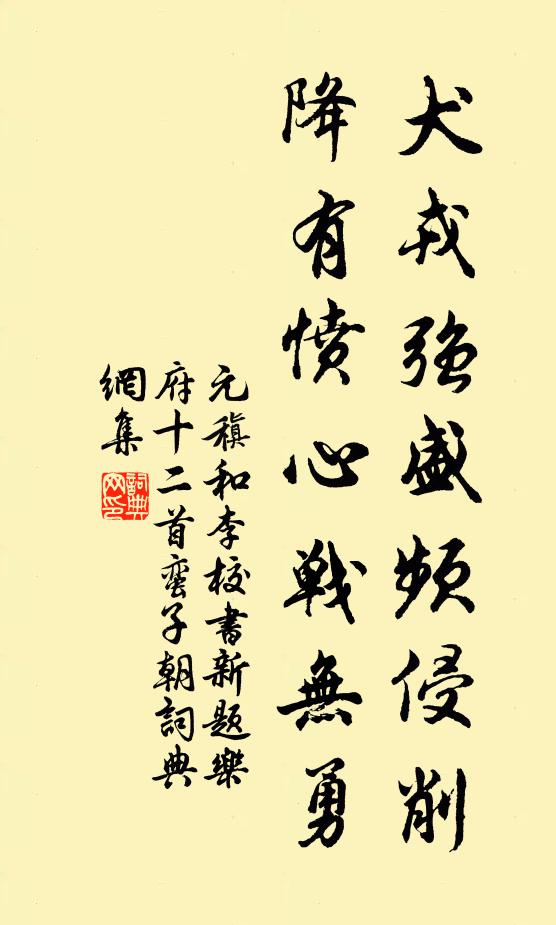 犬戎強盛頻侵削
降有憤心戰無勇
元稹和李校書新題樂
府十二首蠻子朝詞典
網集
詞典
网印